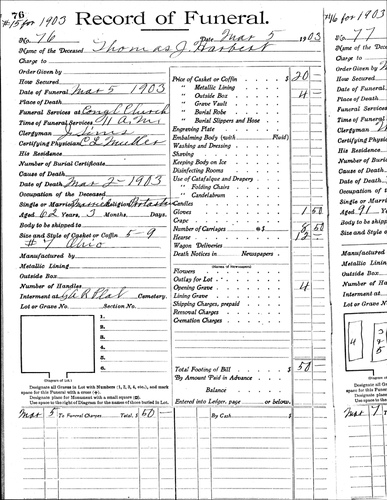 76
#15 for 1903
Record of Funeral.
No. 76 Date Mar 5 1903
Name of the Deceased Thomas J Harbert
Charge to
Order Given by
How Secured
Date of Funeral Mar 5 1903
Place of Death
Funeral Services at Engl Church
Time of Funeral Services
Clergyman
Certifying Physician
His Residence
Number of Burial Certificate
Cause of Death
Date of Death Mar 2 - 1903
Occupation of the Deceased
Single or Married Religion
Aged 62 Years, 3 Months, Days.
Body to be shipped to
Size and Style of Casket or Coffin 5-9
#7 Ohio
Manufactured by
Metallic Lining
Outside Box
Number of Handles
Interment at G.A.R. Plat Cemetery.
Lot or Grave No. Section No.
(Diagram of Lot.)
1.
2.
3.
4.
5.
6.
Designate all Graves in Lot with Numbers (1, 2, 3, 4, etc.), and mark
space for this Funeral with a cross (+).
Designate place for Monument with a small square (□).
Use space to right of Diagram for the names of those buried in Lot.
Price of Casket or Coffin $ 20 -
" Metallic Lining
" Outside Box 4 -
" Grave Vault
" Burial Robe
" Burial Slippers and Hose
Engraving Plate
Embalming Body (with Fluid)
Washing and Dressing
Shaving
Keeping Body on Ice
Disinfecting Rooms
Use of Catafalque and Drapery
" Folding Chairs
" Candelabrum
Candles
Gloves 1 50
Crape
Number of Carriages @ $ 8 50
Hearse 12
Wagon Deliveries
Death Notices in Newspapers
(Names of Newspapers)
Flowers
Outlay for Lot
Opening Grave 4
Lining Grave
Shipping Charges, prepaid
Removal Charges
Cremation Charges
Total Footing of Bill $ 50 -
By Amount Paid in Advance
Balance
Entered into Ledger, page or below.
Mar 5 To Funeral Charges Total, $ 50 -
By Cash $
#16 for 1903
No. 77
Name of the Deceased
Charge to
Order Given by
How Secured
Date of Funeral
Place of Death
Funeral Services
Time of Funeral
Clergyman
Certifying Physician
His Residence
Number of Burial
Cause of Death
Date of Death
Occupation of the
Single or Married
Aged 91 Years,
Body to be shipped
Size and Style of
Manufactured by
Metallic Lining
Outside Box
Number of Handles
Interment at
Lot or Grave No.
4
3
2
5
Mar 7